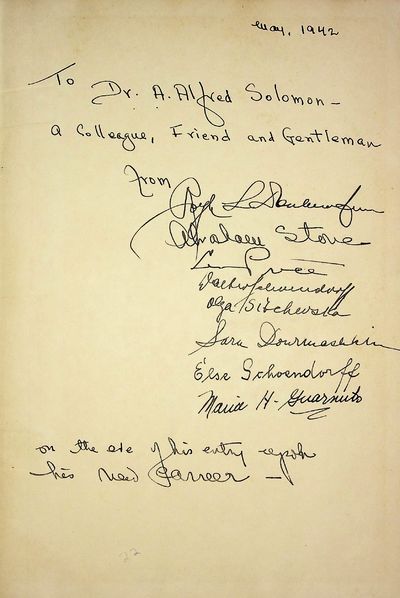 May, 1942
To
Dr. A. Alfred Solomon -
a Colleague, Friend and Gentleman
from
Abraham Stone
Olga Sitchevska
Sara Dourmashkin
Else Schoendorff
Maria H. Guarnuto
on the eve of his entry upon
his new career -
22